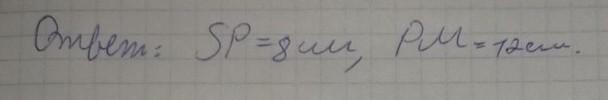 Ответ: SP=8см, PM=12см.